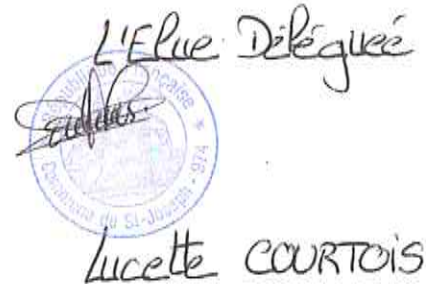 L'Elue Déléguéé
République Française
Commune de St-Joseph - 974 *
Lucette COURTOIS